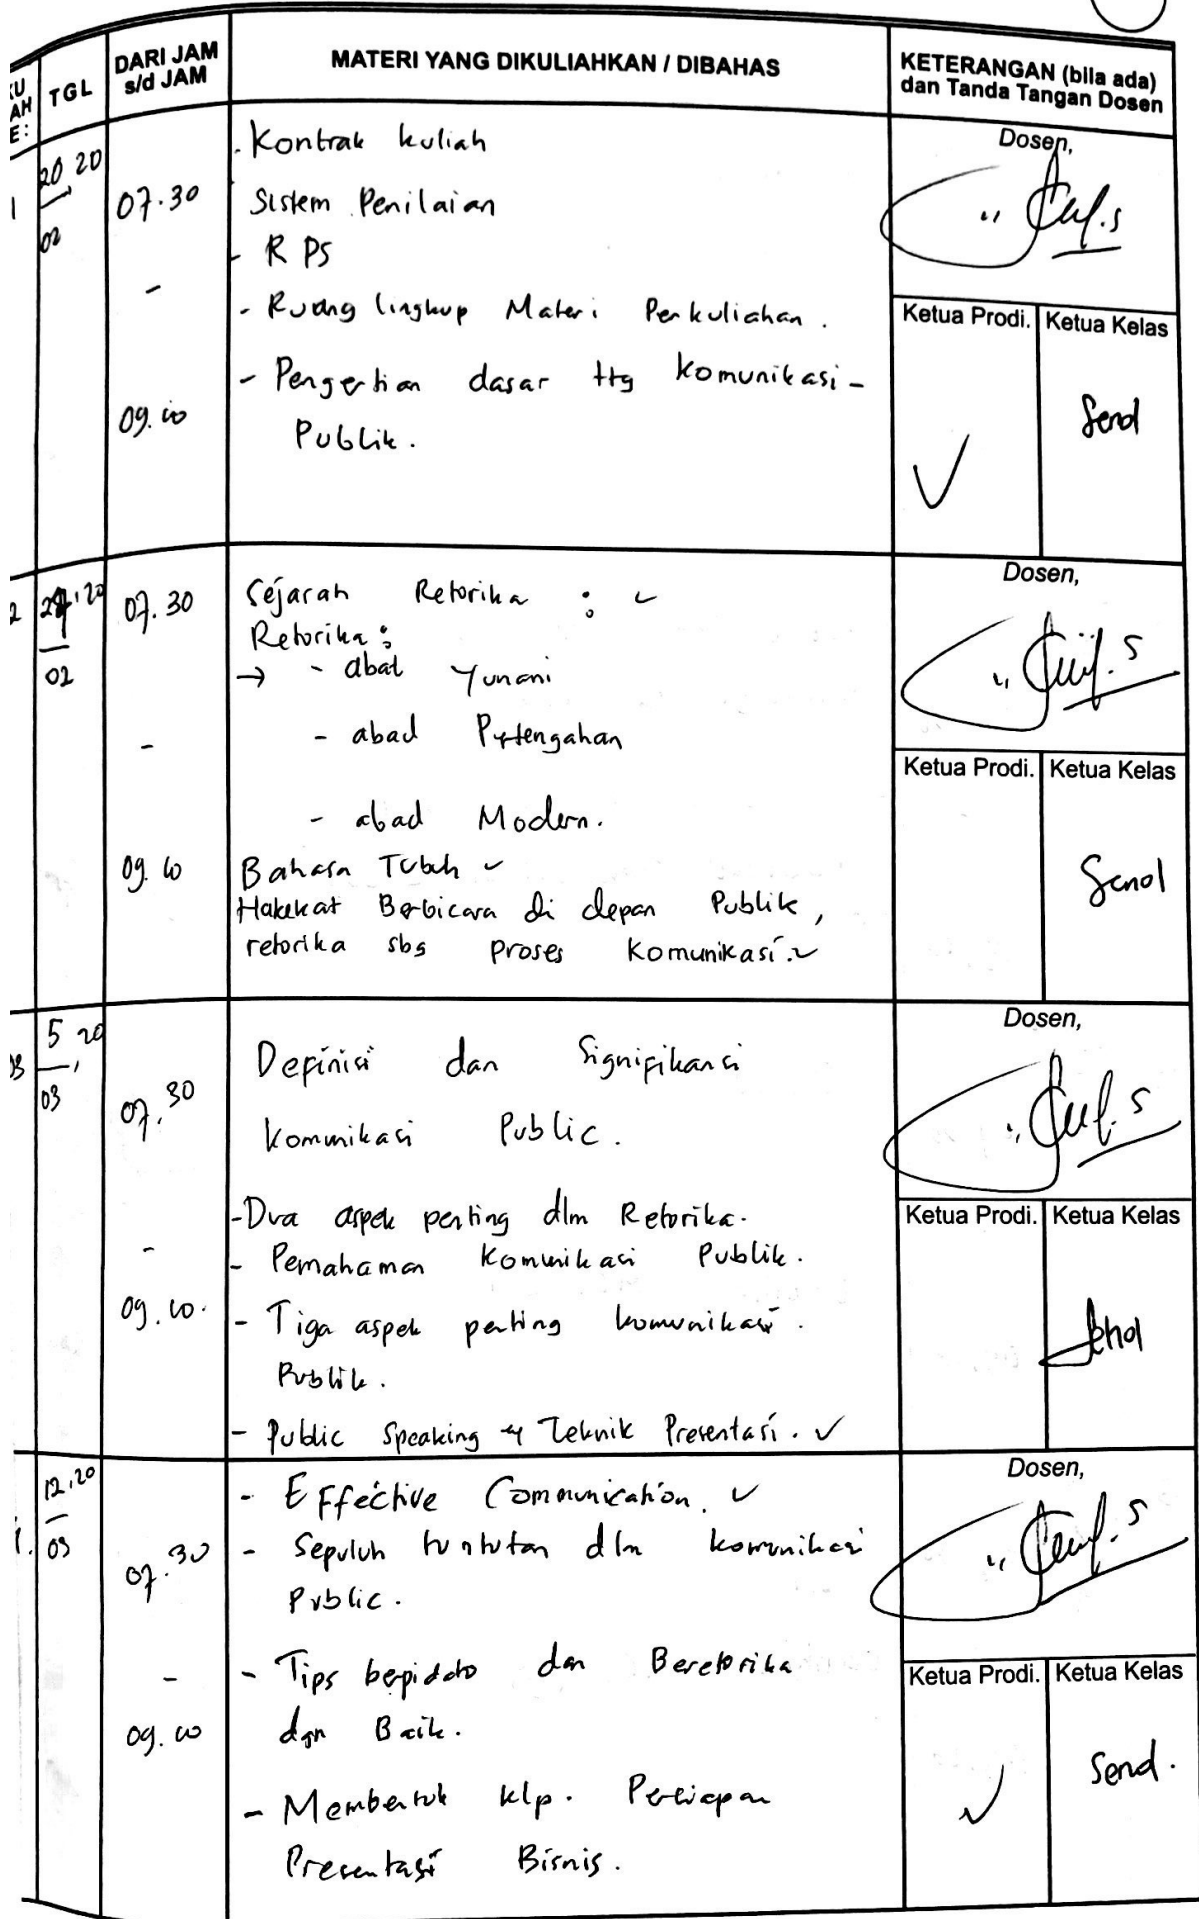 KU
AH
E:
TGL
DARI JAM
s/d JAM
MATERI YANG DIKULIAHKAN / DIBAHAS
KETERANGAN (bila ada)
dan Tanda Tangan Dosen
1
20 20
02
07.30
-
09.00
- Kontrak kuliah
Sistem Penilaian
- RPS
- Ruang lingkup Materi Perkuliahan.
- Pengertian dasar ttg komunikasi-
Publik.
Dosen,
Ketua Prodi.
Ketua Kelas
Send
2
27,20
02
07.30
-
09.00
Sejarah Retorika : ✓
Retorika :
→ - abat Yunani
- abad Pertengahan
- abad Modern.
Bahasa Tubuh ✓
Hakekat Berbicara di depan Publik,
retorika sbg proses komunikasi.✓
Dosen,
Ketua Prodi.
Ketua Kelas
Send
03
5,20
03
07.30
-
09.00.
Definisi dan Signifikansi
Komunikasi Public.
-Dua aspek penting dlm Retorika.
- Pemahaman Komunikasi Publik.
- Tiga aspek penting komunikasi.
Publik.
- Public Speaking Teknik Presentasi. ✓
Dosen,
Ketua Prodi.
Ketua Kelas
12,20
03
07.30
-
09.00
- Effective Communication. ✓
- Sepuluh tuntutan dlm komunikasi
Public.
- Tips bepidato dan Beretorika
dgn Baik.
- Membentuk klp. Persiapan
Presentasi Bisnis.
Dosen,
Ketua Prodi.
Ketua Kelas
Send.